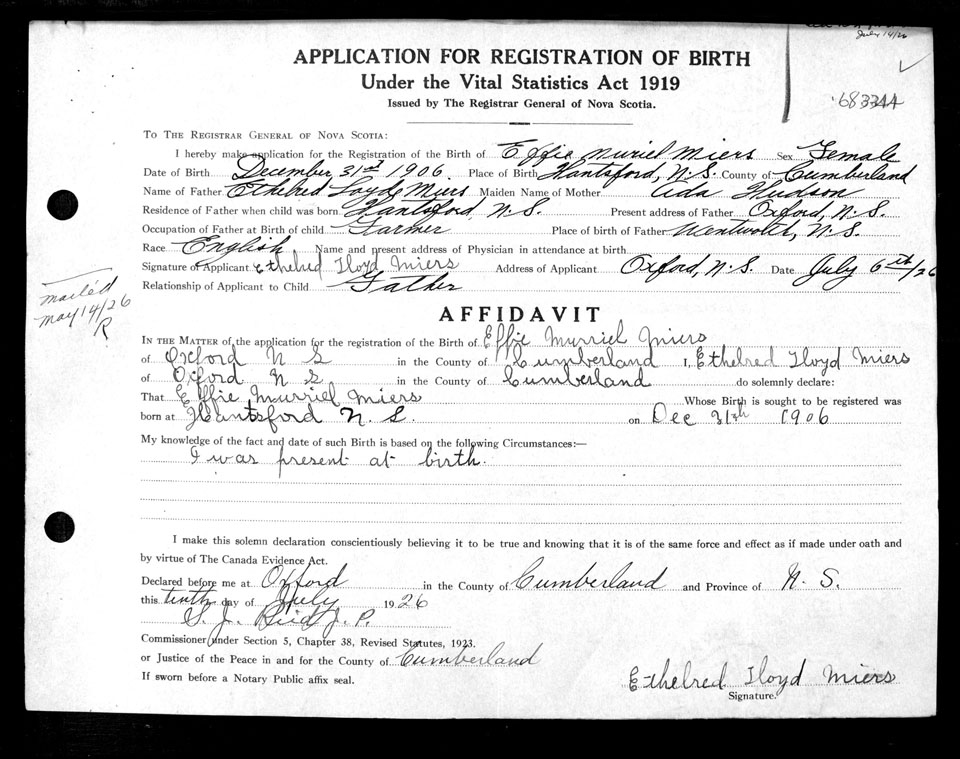 July 14/26
APPLICATION FOR REGISTRATION OF BIRTH
Under the Vital Statistics Act 1919
Issued by The Registrar General of Nova Scotia.
683344
TO THE REGISTRAR GENERAL OF NOVA SCOTIA:
I hereby make application for the Registration of the Birth of Effie Muriel Miers Sex Female
Date of Birth December 31st 1906 Place of Birth Hantsford, N.S. County of Cumberland
Name of Father Ethelred Loyde Miers Maiden Name of Mother Ada Hudson
Residence of Father when child was born Hantsford, N.S. Present address of Father Oxford, N.S.
Occupation of Father at Birth of child Farmer Place of birth of Father Wentworth, N.S.
Race English Name and present address of Physician in attendance at birth
Signature of Applicant Ethelred Lloyd Miers Address of Applicant Oxford, N.S. Date July 6th/26
Relationship of Applicant to Child Father
mailed
may 14/26
R
AFFIDAVIT
IN THE MATTER of the application for the registration of the Birth of Effie Murriel Miers
of Oxford N S in the County of Cumberland I, Ethelred Lloyd Miers
of Oxford N S in the County of Cumberland do solemnly declare:
That Effie Murriel Miers Whose Birth is sought to be registered was
born at Hantsford N. S. on Dec 31th 1906
My knowledge of the fact and date of such Birth is based on the following Circumstances:—
I was present at birth.
I make this solemn declaration conscientiously believing it to be true and knowing that it is of the same force and effect as if made under oath and
by virtue of The Canada Evidence Act.
Declared before me at Oxford in the County of Cumberland and Province of N. S.
this tenth day of July 1926
S. J. Reid J. P.
Commissioner (under Section 5, Chapter 38, Revised Statutes, 1923.
or Justice of the Peace in and for the County of Cumberland
If sworn before a Notary Public affix seal.
Ethelred Lloyd Miers
Signature.